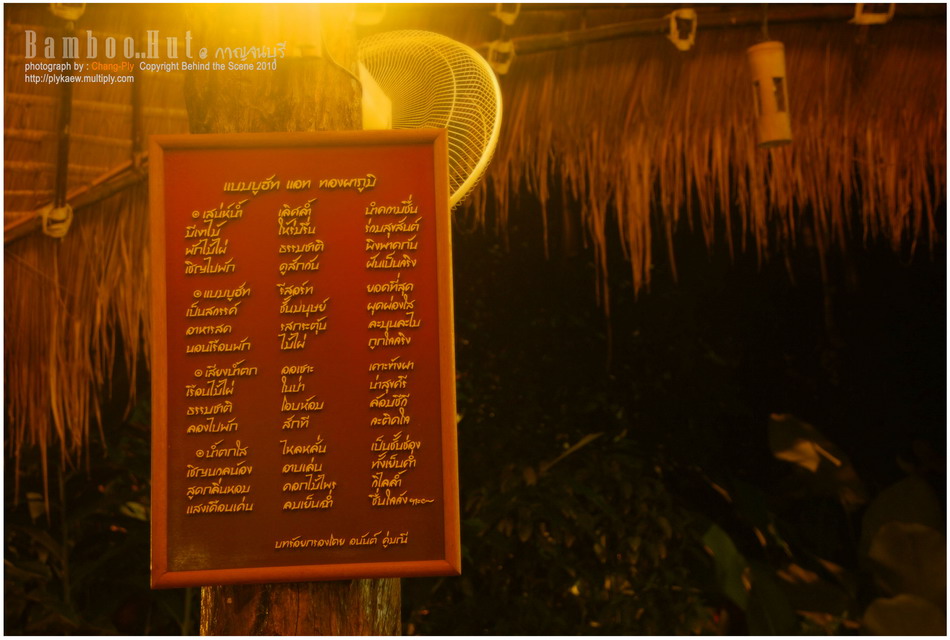 Bamboo..Hut @ กาญจนบุรี
photograph by : Chang-Ply Copyright Behind the Scene 2010
http://plykaew.multiply.com
แบมบูฮัท แอท ทองผาภูมิ
๏ เสน่ห์น้ำ เลิศล้ำ น่าดื่ม
มีเขาไม้ ให้ร่มรื่น
พักไม้ไผ่ ธรรมชาติ พิงพาดกัน
เชิญไปพัก ดูสักกัน ฝันเป็นจริง
๏ แบมบูฮัท รีสอร์ท ยอดที่สุด
เป็นสวรรค์ ชั้นมนุษย์ ผุดผ่องใส
อาหารสด ละมุนละไม
นอนเรือนพัก ไม้ไผ่ ถูกใจจริง
๏ เสียงน้ำตก ออเซาะ เคาะข้างผา
เรือนไม้ไผ่ ในป่า น่าสุขศรี
ธรรมชาติ โอบห้อม ล้อมชีวี
ลองไปพัก สักที จะติดใจ
๏ น้ำตกใส ไหลหลั่น เป็นชั้นช่อง
เชิญนวลน้อง อาบเล่น ทั้งเย็นค่ำ
สูดกลิ่นหอม ดอกไม้ไพร
แสงเดือนเด่น ลมเย็นฉ่ำ ชื่นใจ
บทร้อยกรองโดย อนันต์ คู่มณี